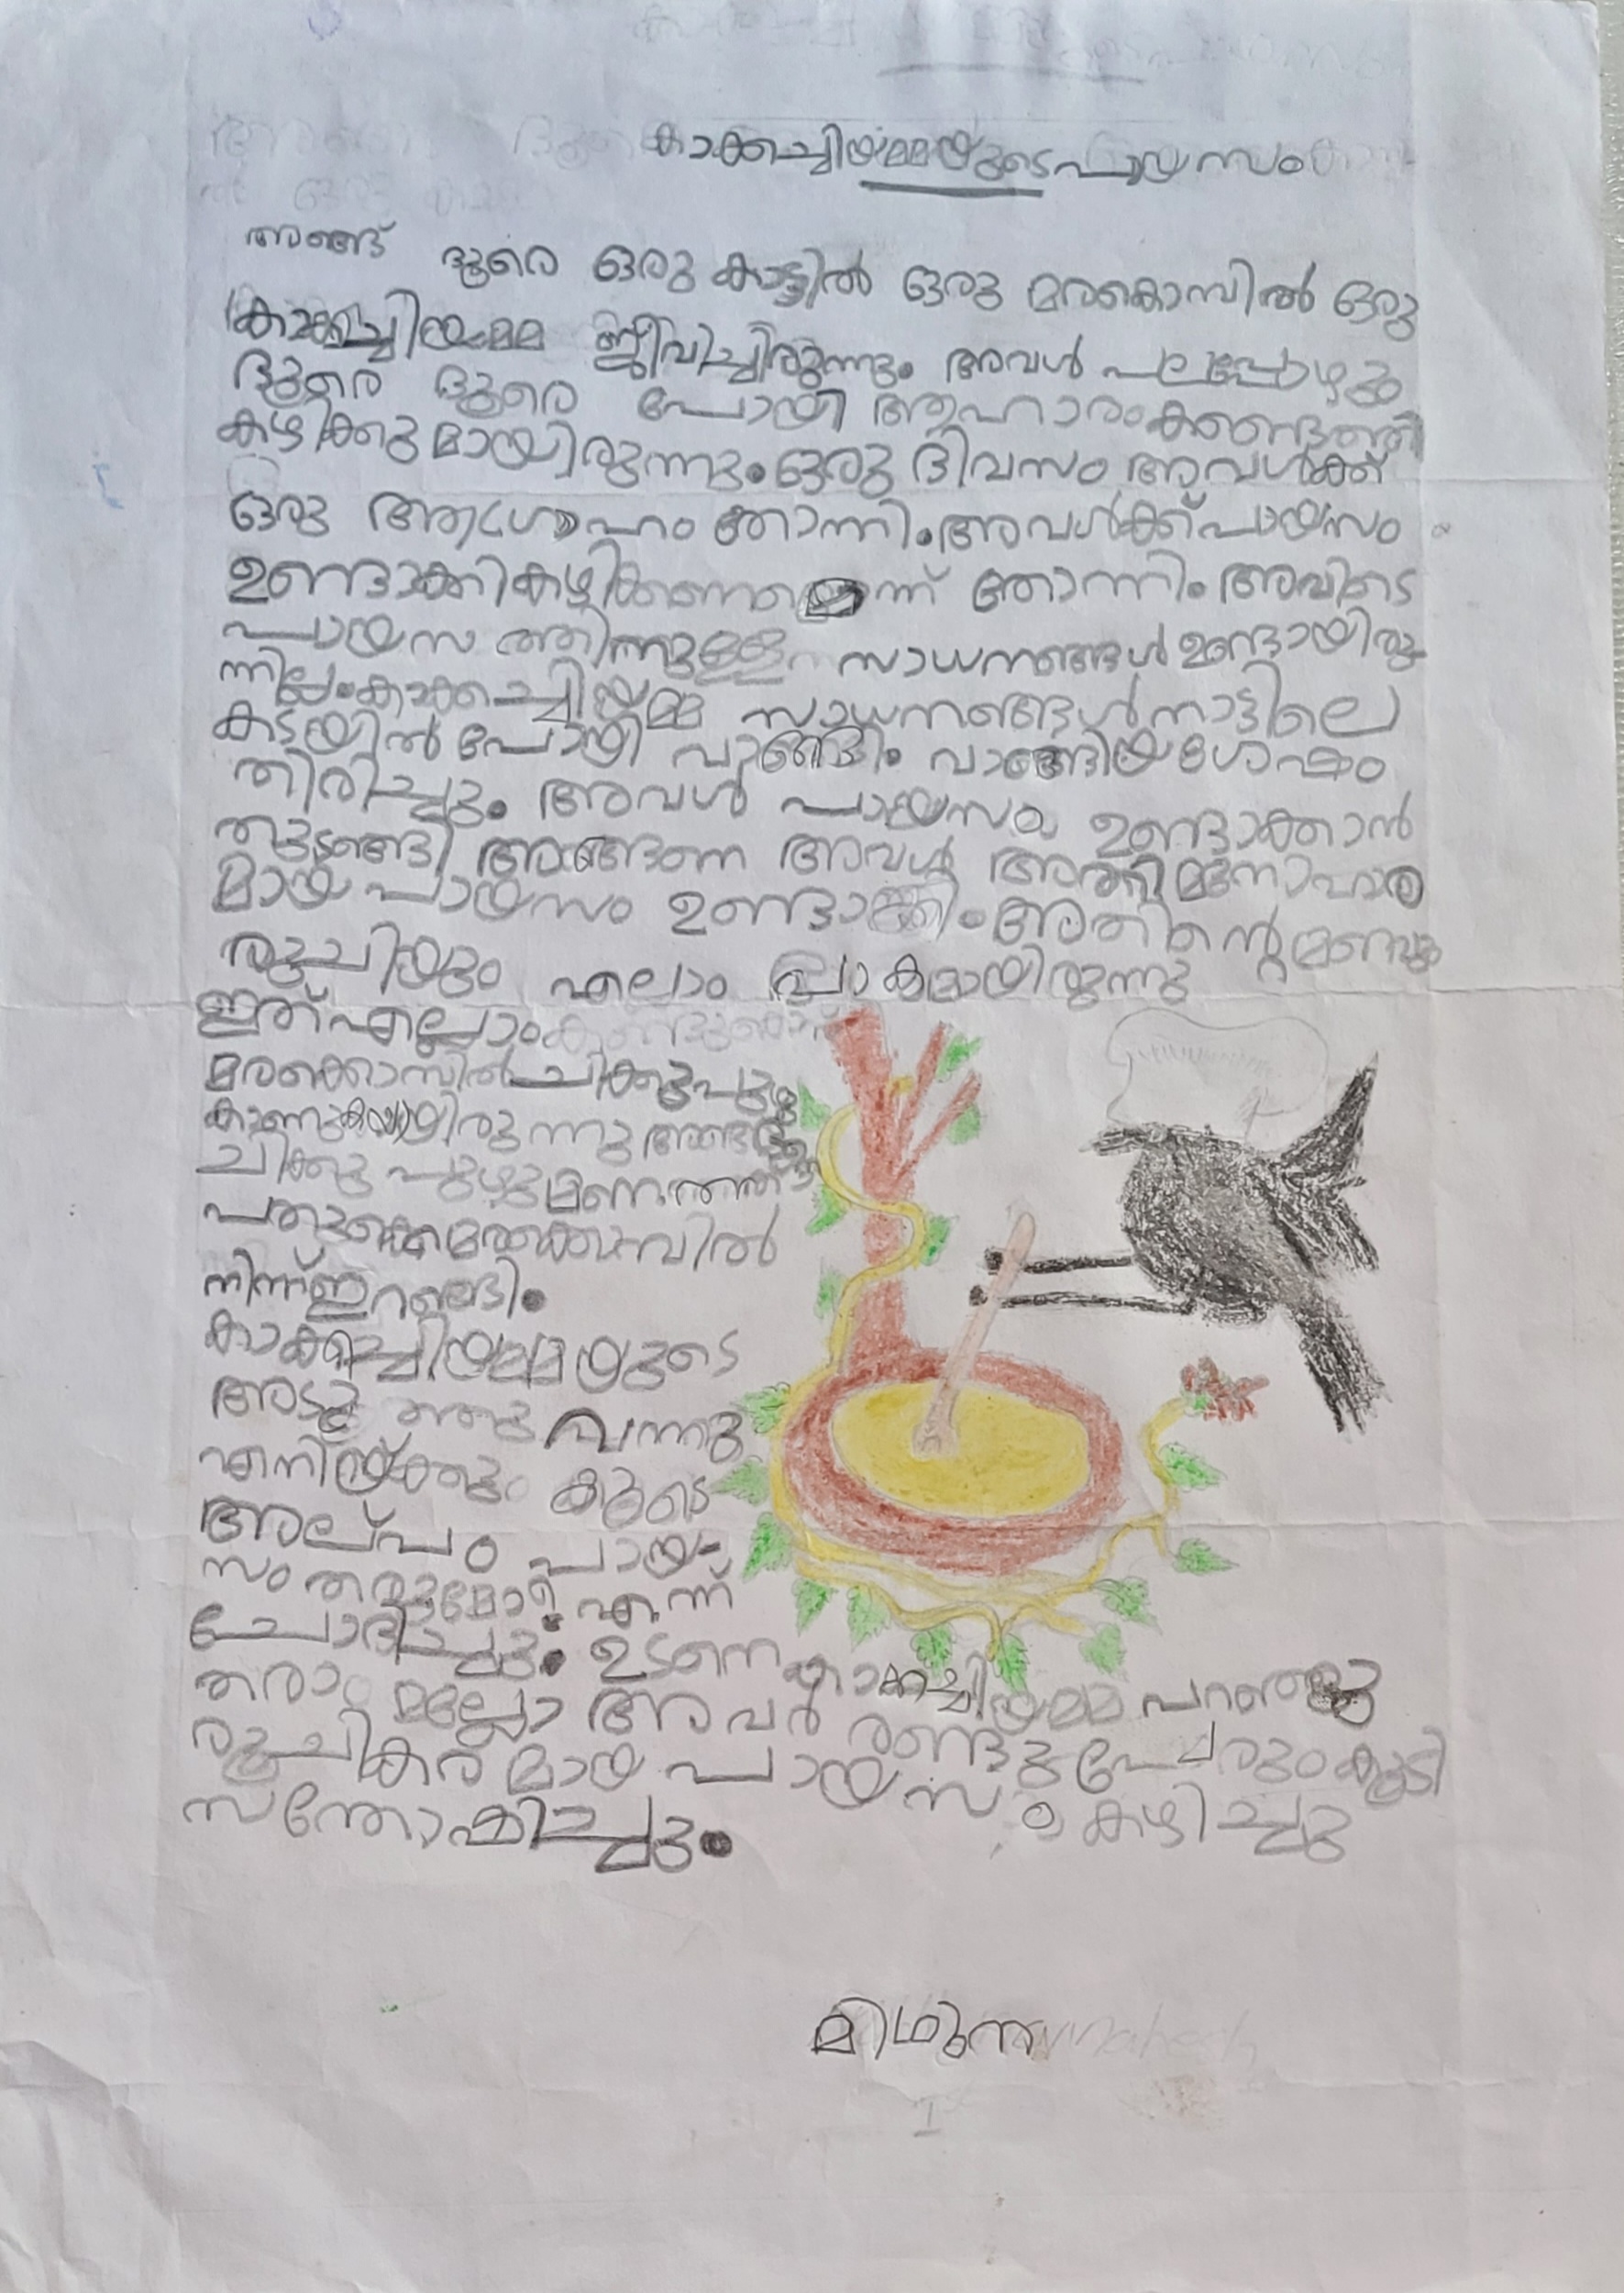 കാക്കച്ചിയമ്മയുടെ പായസം
അങ്ങ് ദൂരെ ഒരു കാട്ടിൽ ഒരു മരകൊമ്പിൽ ഒരു
കാക്കച്ചിയമ്മ ജീവിച്ചിരുന്നു. അവൾ പലപ്പോഴും
ദൂരെ ദൂരെ പോയി ആഹാരം കണ്ടെത്തി
കഴിക്കുമായിരുന്നു. ഒരു ദിവസം അവൾക്ക്
ഒരു ആഗ്രോഹം തോന്നി. അവൾക്ക് പായസം
ഉണ്ടാക്കി കഴിക്കണമെന്ന് തോന്നി. അവിടെ
പായസത്തിന്നുള്ള സാധനങ്ങൾ ഉണ്ടായിരു
ന്നില്ല. കാക്കച്ചിയമ്മ സാധനങ്ങൾ നാട്ടിലെ
കടയിൽ പോയി വാങ്ങി. വാങ്ങിയ ശേഷം
തിരിച്ചു. അവൾ പായസം ഉണ്ടാക്കാൻ
തുടങ്ങി അങ്ങനെ അവൾ അതി മനോഹര
മായ പായസം ഉണ്ടാക്കി. അതിന്റെ മണവും
രുചിയും എല്ലാം പാകമായിരുന്നു
ഇത് എല്ലാം കണ്ടുകൊണ്ട്
മരക്കൊമ്പിൽ ചിക്കുപുഴു
കാണുകയായിരുന്നു അങ്ങനെ
ചിക്കു പുഴു മണത്ത്
പതുക്കെ മരക്കൊമ്പിൽ
നിന്ന് ഇറങ്ങി.
കാക്കച്ചിയമ്മയുടെ
അടുത്തു വന്നു
എനിയ്ക്കും കൂടെ
അല്പം പായ-
സം തരുമോ? എന്ന്
ചോദിച്ചു. ഉടനെ കാക്കച്ചിയമ്മ പറഞ്ഞു
തരാമല്ലോ അവർ രണ്ടു പേരും കൂടി
രുചികരമായ പായസം കഴിച്ചു
സന്തോഷിച്ചു.
മിഥുന
I